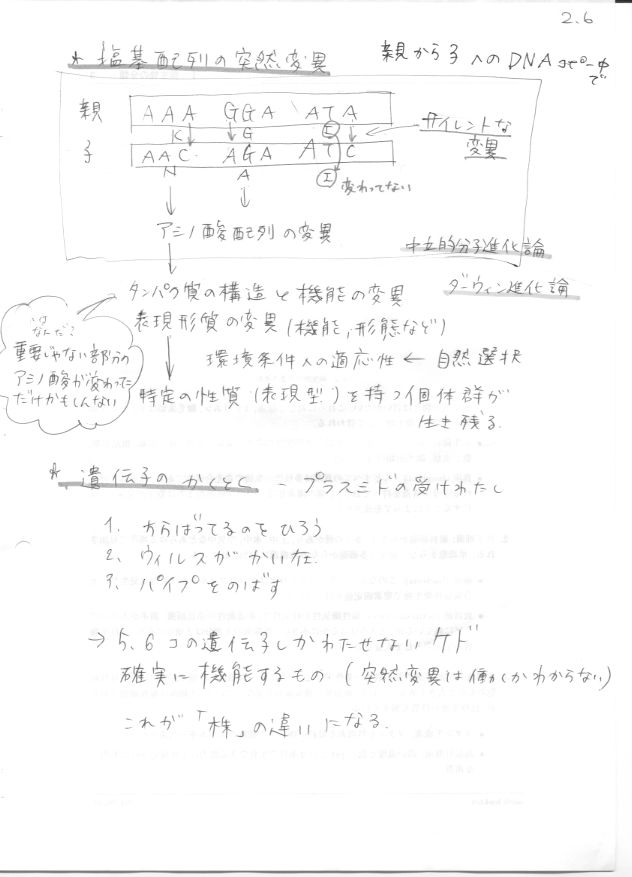 2.6
* 塩基配列の突然変異 親から子へのDNAコピー中で
親 AAA GGA ATA
K G I
サイレントな
変異
子 AAC AGA ATC
N A I 変わってない
アミノ酸配列の変異
中立的分子進化論
タンパク質の構造と機能の変異
ダーウィン進化論
表現形質の変異(機能,形態など)
なんだ?
重要じゃない部分の
アミノ酸が変わった
だけかもしんない
環境条件への適応性 ← 自然選択
特定の性質(表現型)を持つ個体群が
生き残る.
* 遺伝子のかくとく プラスミドの受けわたし
1. ちらばってるのをひろう
2. ウィルスがかい在.
3. パイプをのばす
→ 5,6コの遺伝子しかわたせないケド
確実に機能するもの(突然変異は働くかわからない)
これが「株」の違いになる.